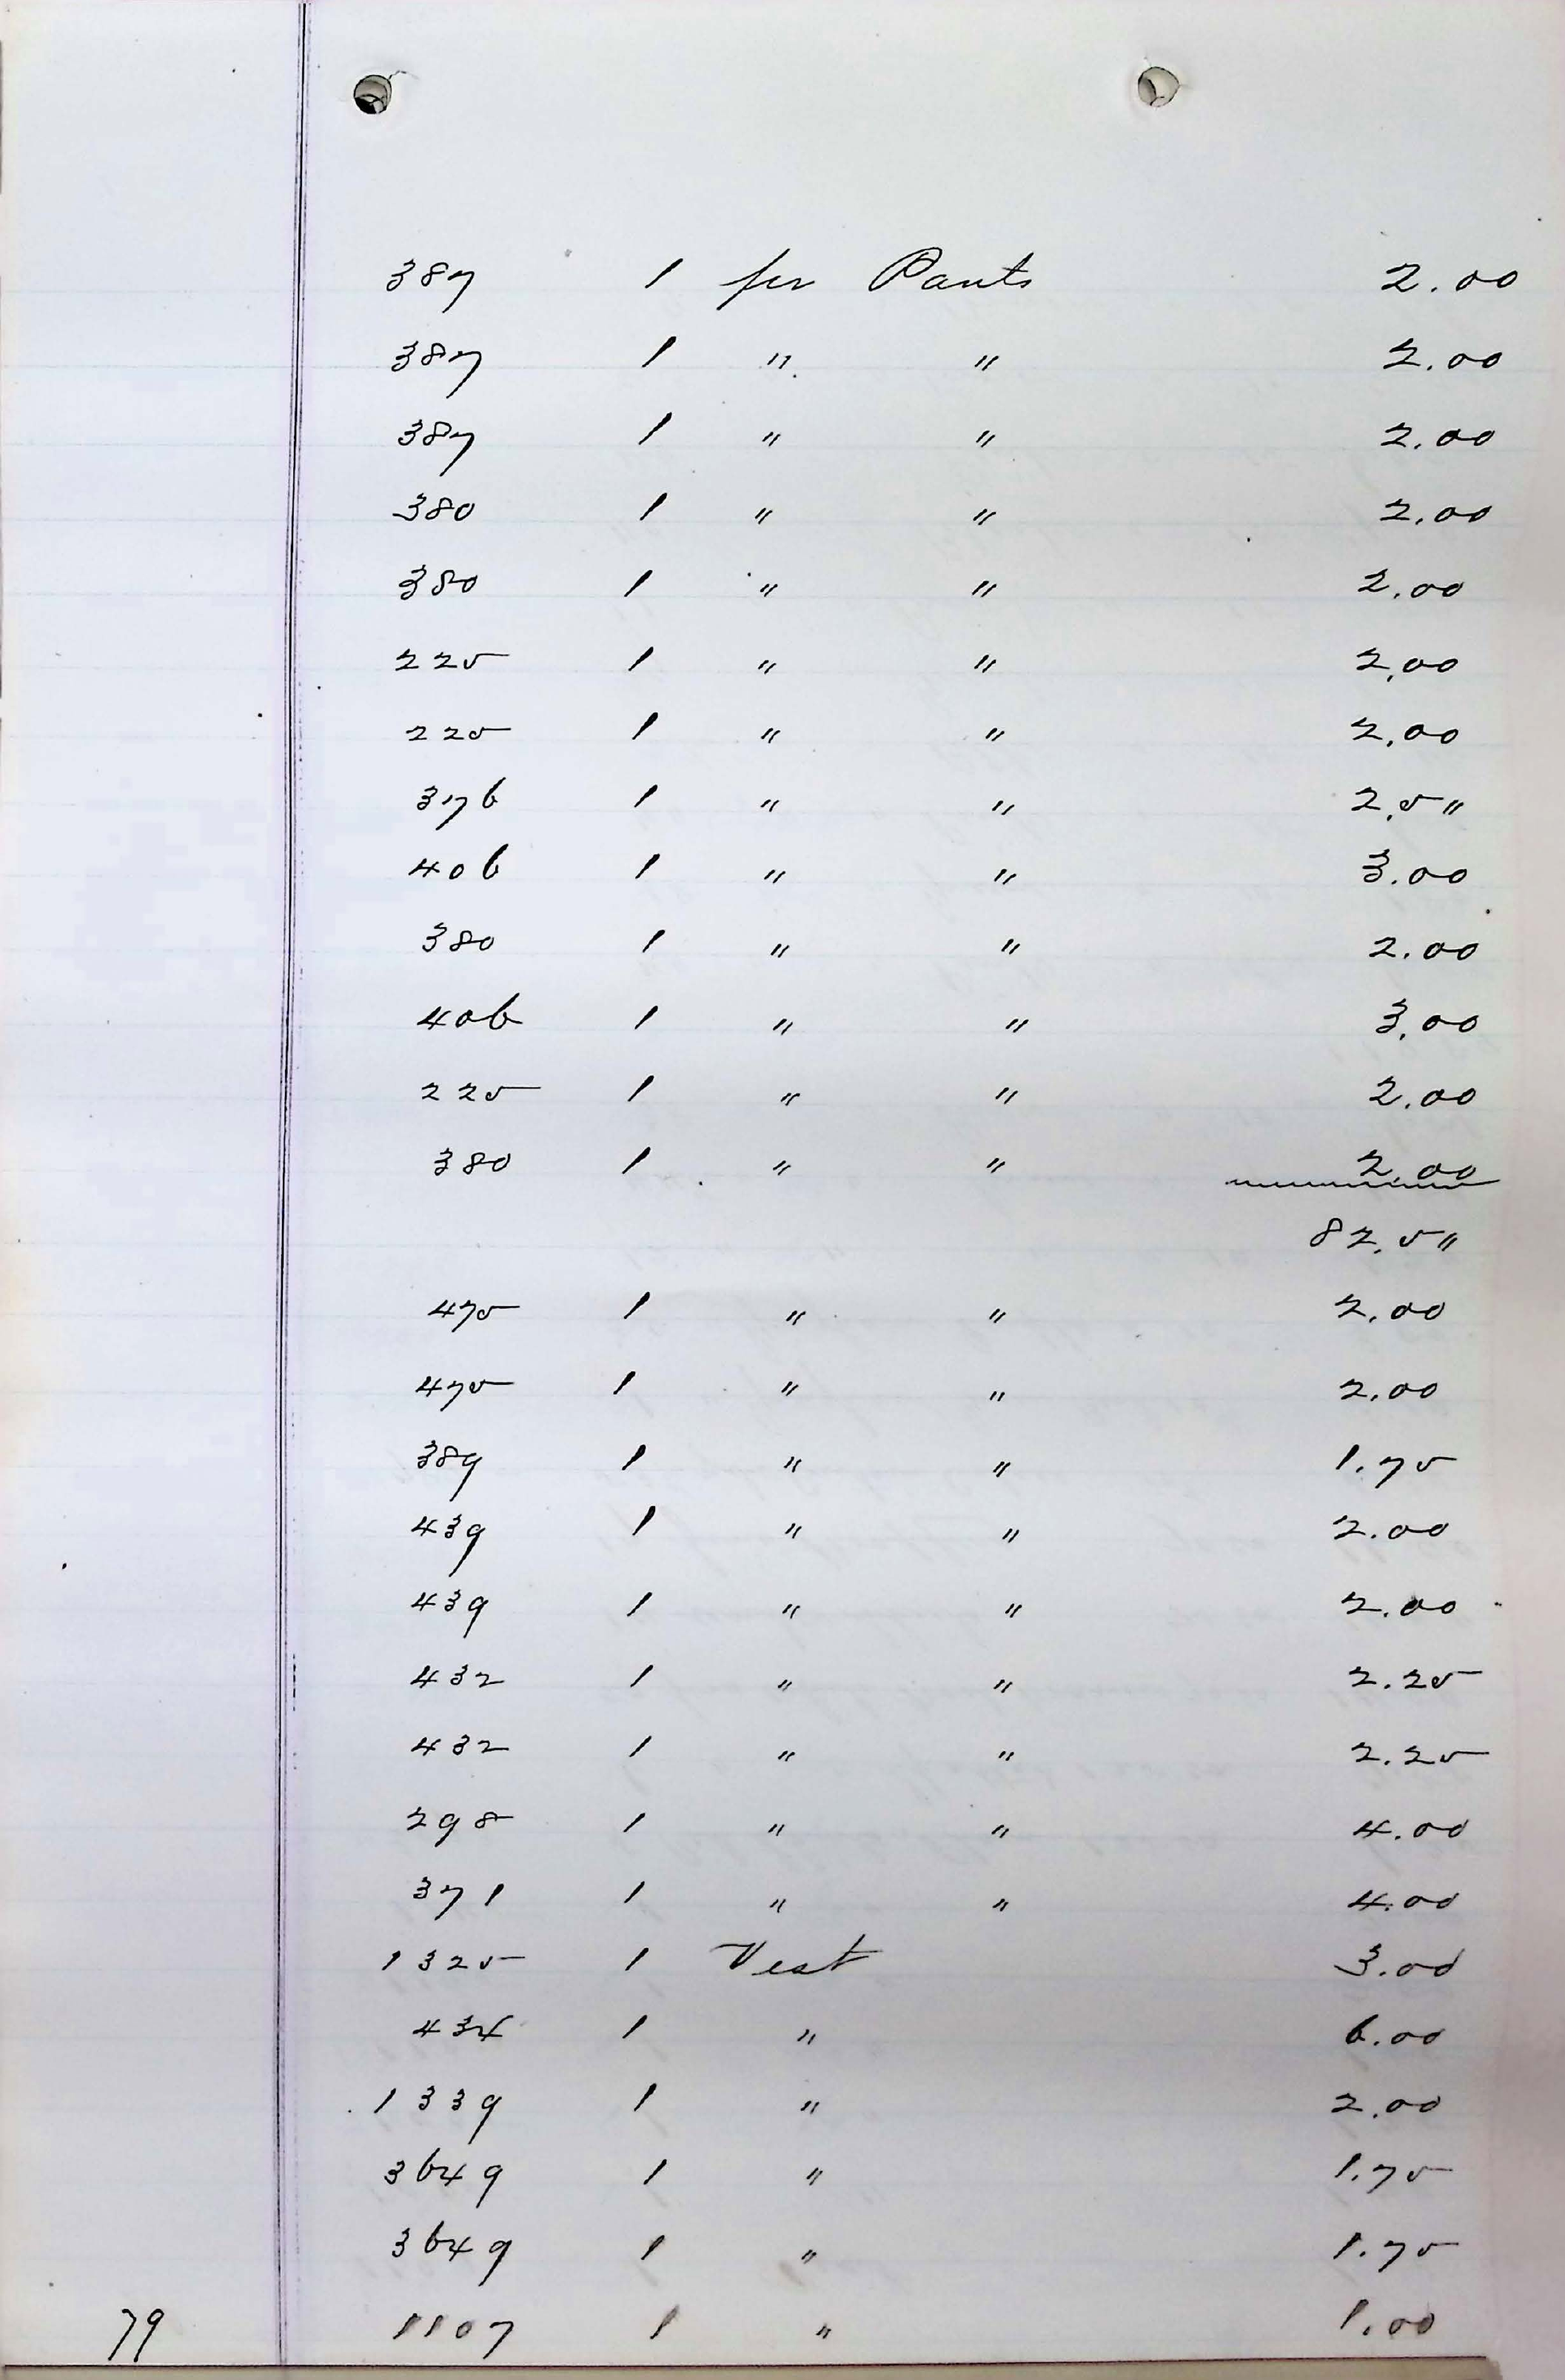 387 1 pr Pants 2.00
387 1 " " 2.00
387 1 " " 2.00
380 1 " " 2.00
380 1 " " 2.00
225 1 " " 2.00
225 1 " " 2.00
376 1 " " 2.5"
406 1 " " 3.00
380 1 " " 2.00
406 1 " " 3.00
225 1 " " 2.00
380 1 " " 2.00
82.5"
475 1 " " 2.00
475 1 " " 2.00
389 1 " " 1.75
439 1 " " 2.00
439 1 " " 2.00
432 1 " " 2.25
432 1 " " 2.25
298 1 " " 4.00
371 1 " " 4.00
1325 1 Vest 3.00
434 1 " 6.00
1339 1 " 2.00
3649 1 " 1.75
3649 1 " 1.75
79 1107 1 " 1.00